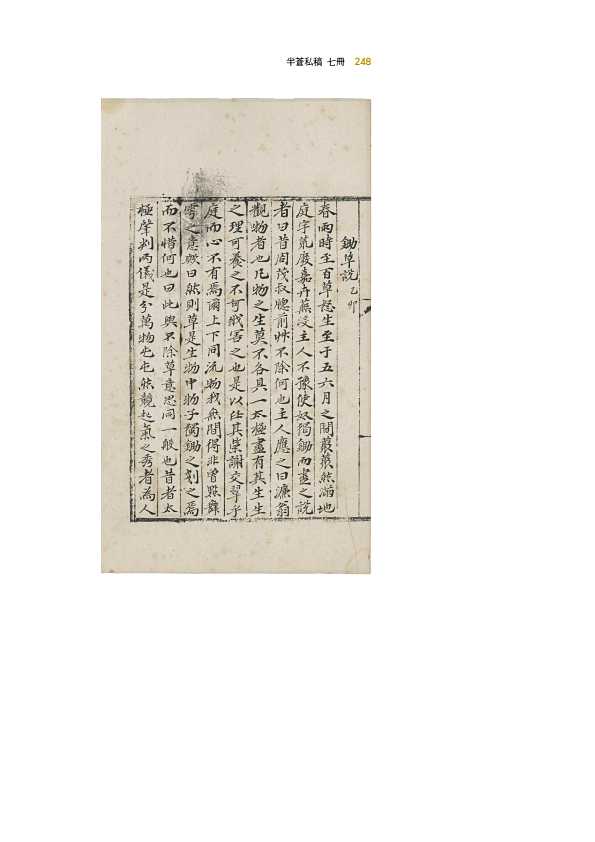 半蒼私稿 七冊 248
鋤草說 乙卯
春雨時至百草怒生至于五六月之間蔉蔉然滿地
庭宇荒廢嘉卉蕪沒主人不豫使奴獨鋤而盡之說
者曰昔周茂叔牕前艸不除何也主人應之曰濂翁
觀物者也凡物之生莫不各具一太極盡有其生生
之理可養之不可戕害之也是以任其榮謝交翠乎
庭而心不有焉爾上下同流物我無間得非曾點舞
雩之意歟曰然則草是生物中物子獨鋤之剗之焉
而不惜何也曰此與不除草意思同一般也昔者太
極肇判兩儀是分萬物芚芚然競起氣之秀者為人